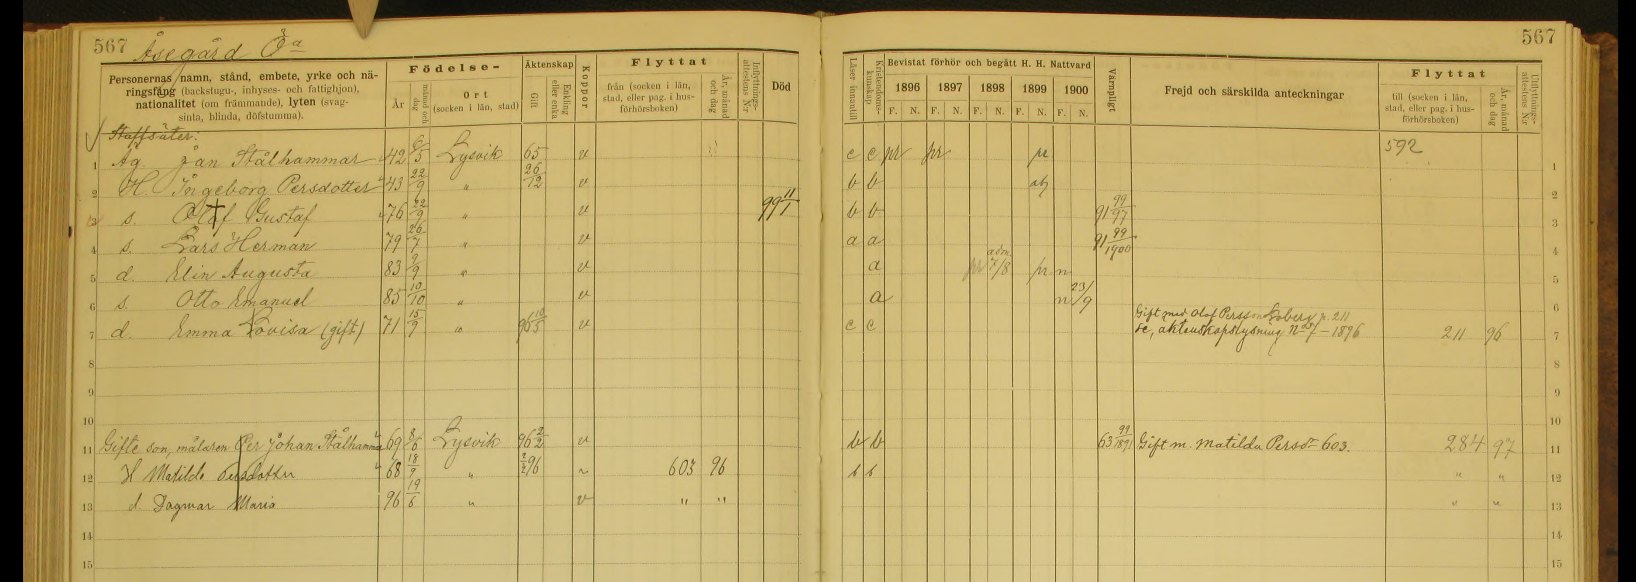 567 Åsegård Öa 567
Personernas namn, stånd, embete, yrke och näringsfång (backstugu-, inhyses- och fattighjon), nationalitet (om främmande), lyten (svagsinta, blinda, döfstumma).
Födelse-
År
månad och dag
Ort (socken i län, stad)
Äktenskap
Gift
Enkling eller enka
Koppor
Flyttat
från (socken i län, stad, eller pag. i husförhörsboken)
År, månad och dag
Inflyttningsattestens N:r
Död
Läser innantill
Kristendomskunskap
Bevistat förhör och begått H. H. Nattvard
1896 1897 1898 1899 1900
F. N. F. N. F. N. F. N. F. N.
Värnpligt
Frejd och särskilda anteckningar
Flyttat
till (socken i län, stad, eller pag. i husförhörsboken)
År, månad och dag
Utflyttningsattestens N:r
Staffsäter:
1 Äg. Jan Stålhammar 42 6/5 Lysvik 65 v c c pr pr pr 592 1
2 H. Ingeborg Persdotter 43 22/9 " 26/12 v b b 2
3 s. Olof Gustaf 76 22/9 " v 99 11/1 b b 91 99/97 3
4 s. Lars Herman 79 26/7 " v a a 91 99/1900 4
5 d. Elin Augusta 83 9/9 " v a pr adm. 7/8 pr n 5
6 s. Otto Emanuel 85 10/10 " v a n 23/9 6
7 d. Emma Lovisa (gift) 71 15/9 " 96 10/5 v c c Gift med Olof Persson p. 211
se, äktenskapslysning 1896 211 96 7
8 8
9 9
10 10
11 Gifte son, målaren Per Johan Stålhammar 69 8/6 Lysvik 96 2/2 v b b 63 99/1891 Gift m. Matilda Persdr 603. 284 97 11
12 H Matilda Persdotter 68 18/9 " 2/2 96 v 603 96 b b " " 12
13 d. Dagmar Maria 96 19/6 " v " " " " 13
14 14
15 15